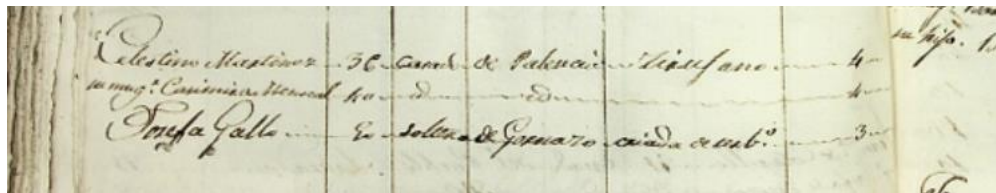 Celestino Martinez 36 casad de Palencia Zirufano 4
su mug.ª Casimira 40 id id 4
Josefa Gallo 60 soltera de Gomazo criada de 3
su hijo.